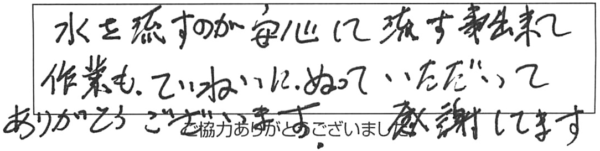 水を流すのが安心して流す事出来て
作業も、ていねいに、ぬって いただいって
ありがとう ございます。 感謝してます
ご協力ありがとうございまし